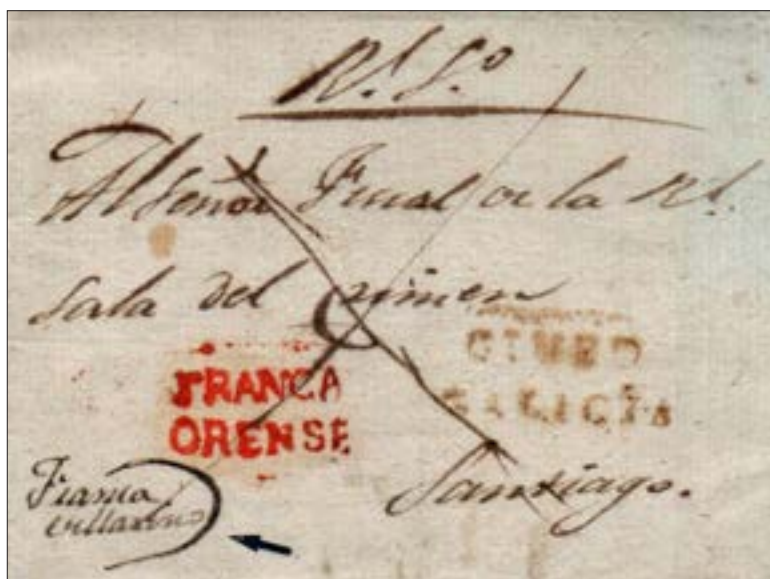 Rl. So.
Al Señor Fiscal de la Rl.
Sala del Crimen
FRANCA
ORENSE
GALICIA
Santiago.
Franca